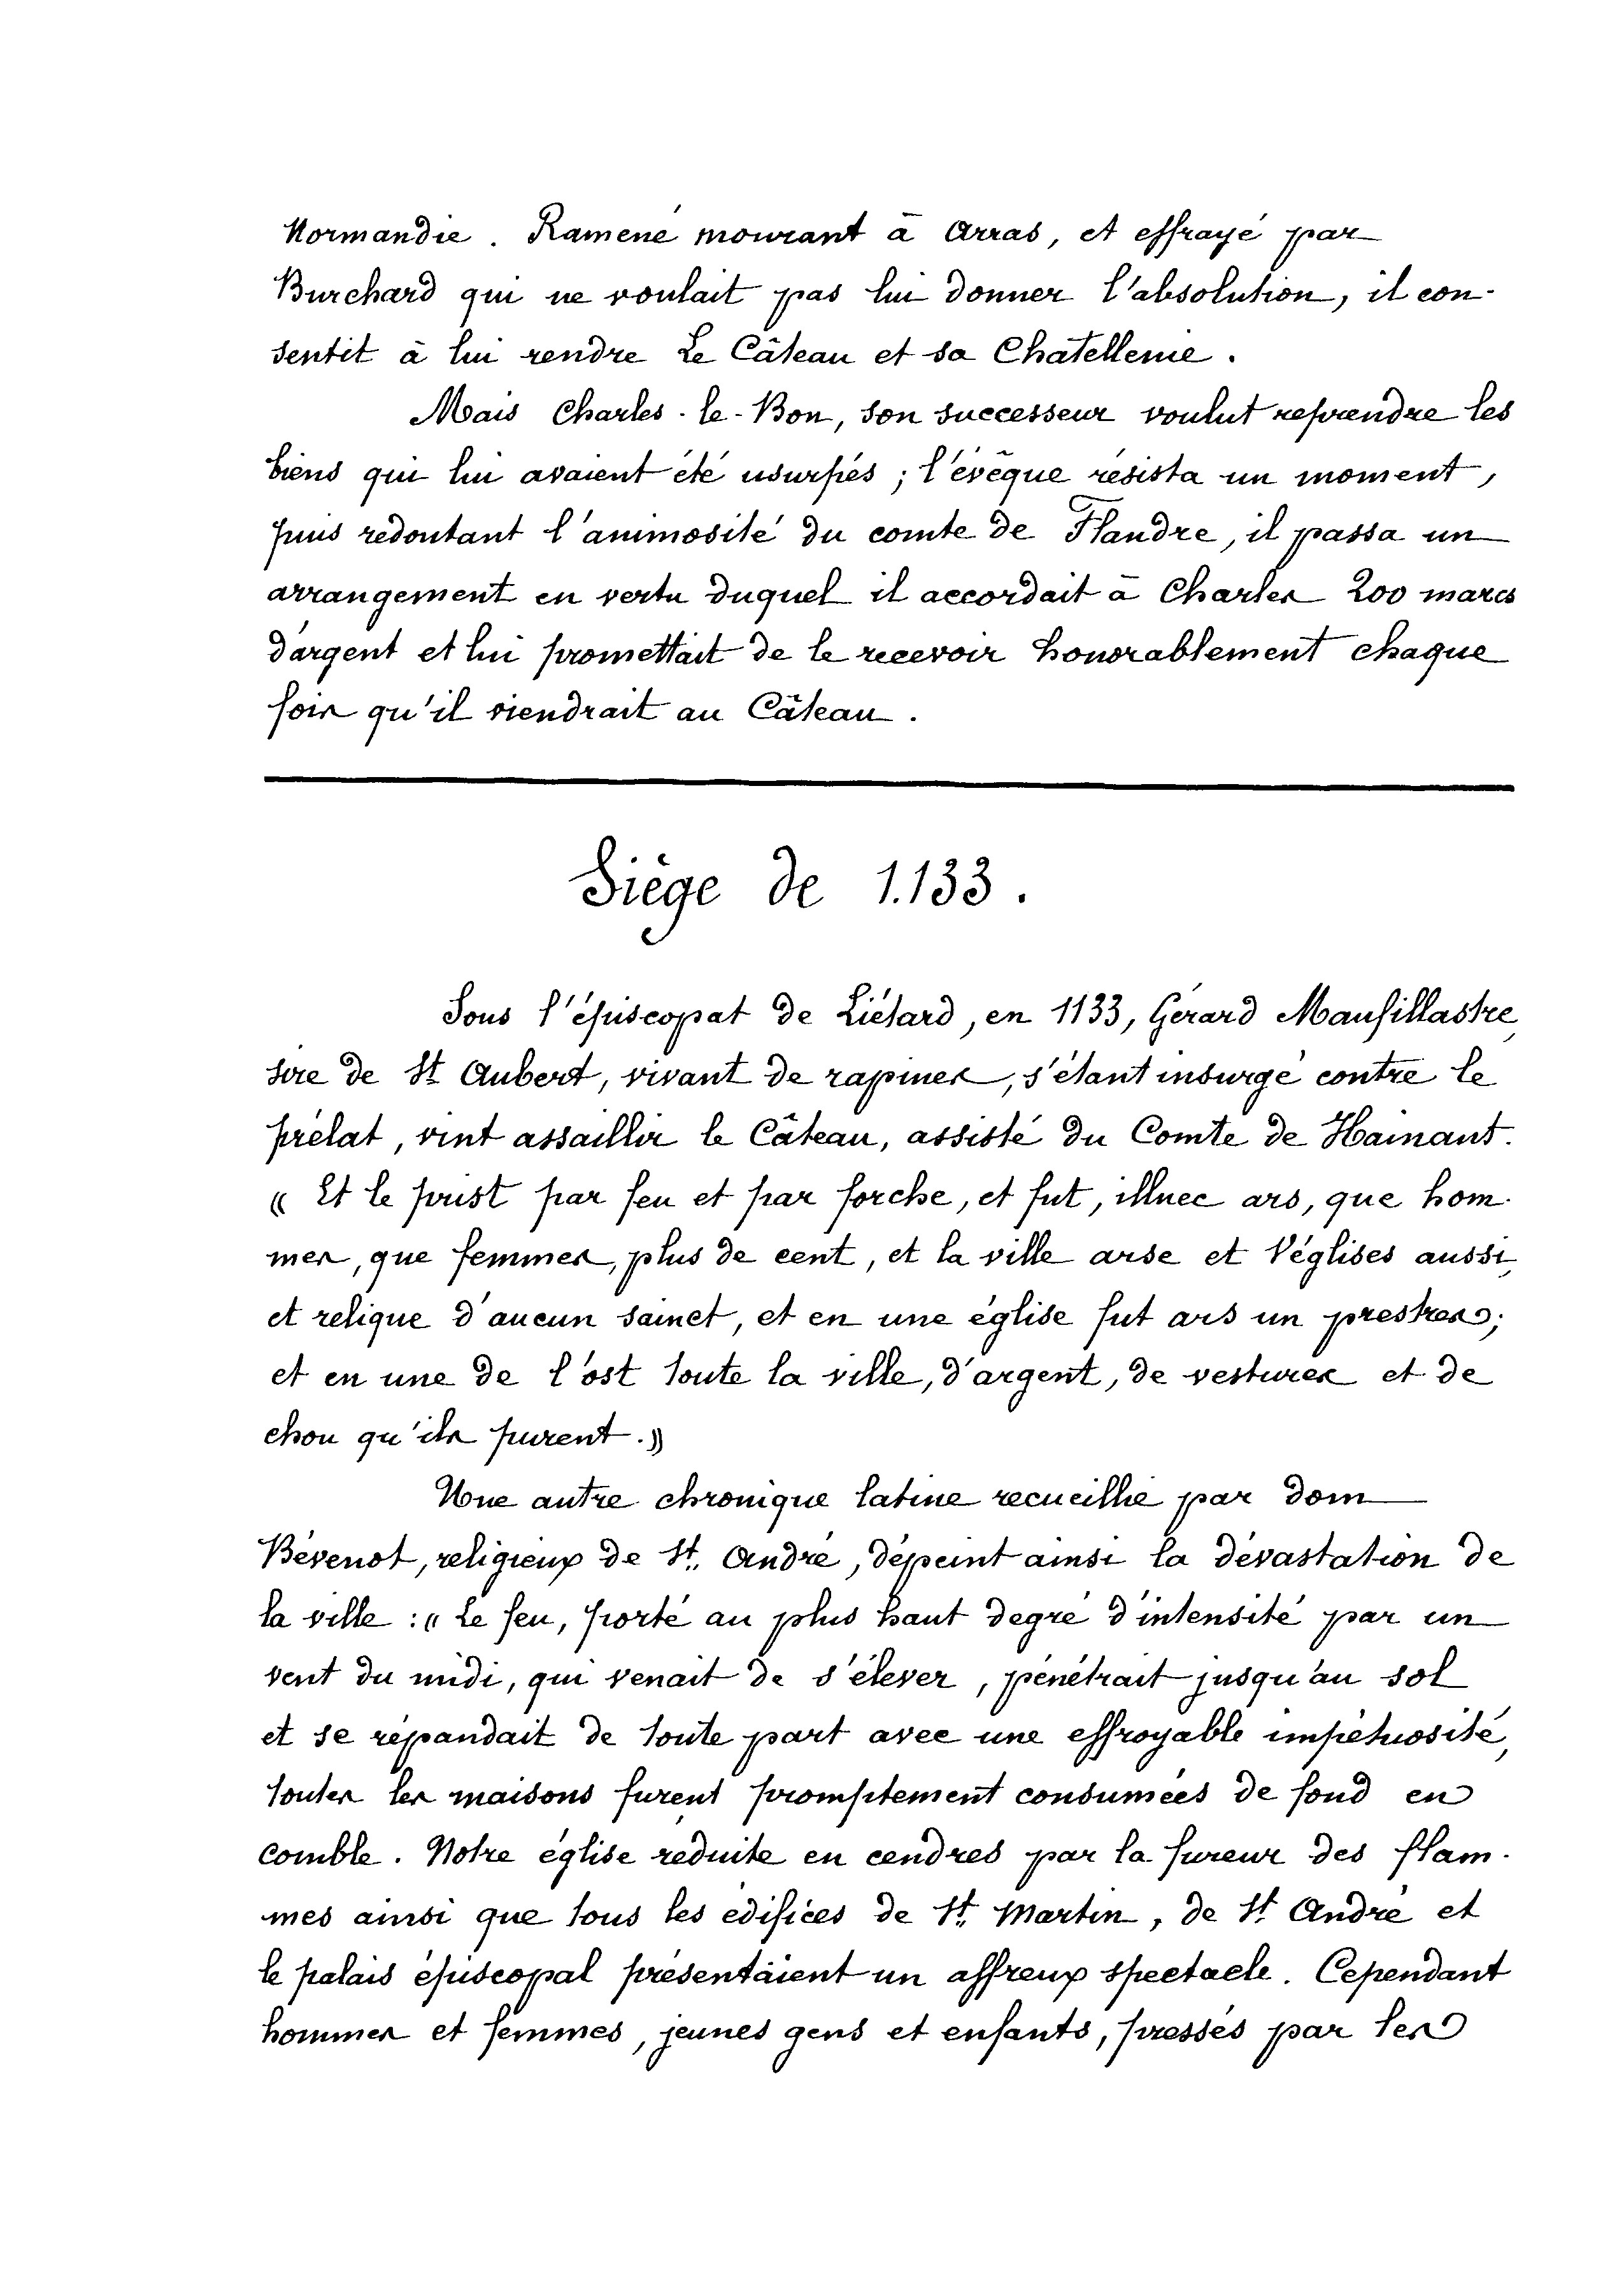 Normandie. Ramené mourant à Arras, et effrayé par
Burchard qui ne voulait pas lui donner l'absolution, il con-
sentit à lui rendre Le Câteau et sa Chatellenie.
Mais Charles-le-Bon, son successeur voulut reprendre les
biens qui lui avaient été usurpés ; l'évêque résista un moment,
puis redoutant l'animosité du comte de Flandre, il passa un
arrangement en vertu duquel il accordait à Charles 200 marcs
d'argent et lui promettait de le recevoir honorablement chaque
fois qu'il viendrait au Câteau.
Siège de 1.133.
Sous l'épiscopat de Liétard, en 1133, Gérard Maufillastre,
sire de St Aubert, vivant de rapines, s'étant insurgé contre le
prélat, vint assaillir le Câteau, assisté du Comte de Hainaut.
« Et le prist par feu et par forche, et fut, illuec ars, que hom-
mes, que femmes, plus de cent, et la ville arse et l'églises aussi,
et relique d'aucun sainct, et en une église fut ars un prestres;
et en une de l'ost toute la ville, d'argent, de vestures et de
chou qu'ils purent. »
Une autre chronique latine recueillie par dom
Bévenot, religieux de St. André, dépeint ainsi la dévastation de
la ville : « Le feu, porté au plus haut degré d'intensité par un
vent du midi, qui venait de s'élever, pénétrait jusqu'au sol
et se répandait de toute part avec une effroyable impétuosité,
toutes les maisons furent promptement consumées de fond en
comble. Notre église réduite en cendres par la fureur des flam-
mes ainsi que tous les édifices de St. Martin, de St. André et
le palais épiscopal présentaient un affreux spectacle. Cependant
hommes et femmes, jeunes gens et enfants, pressés par les